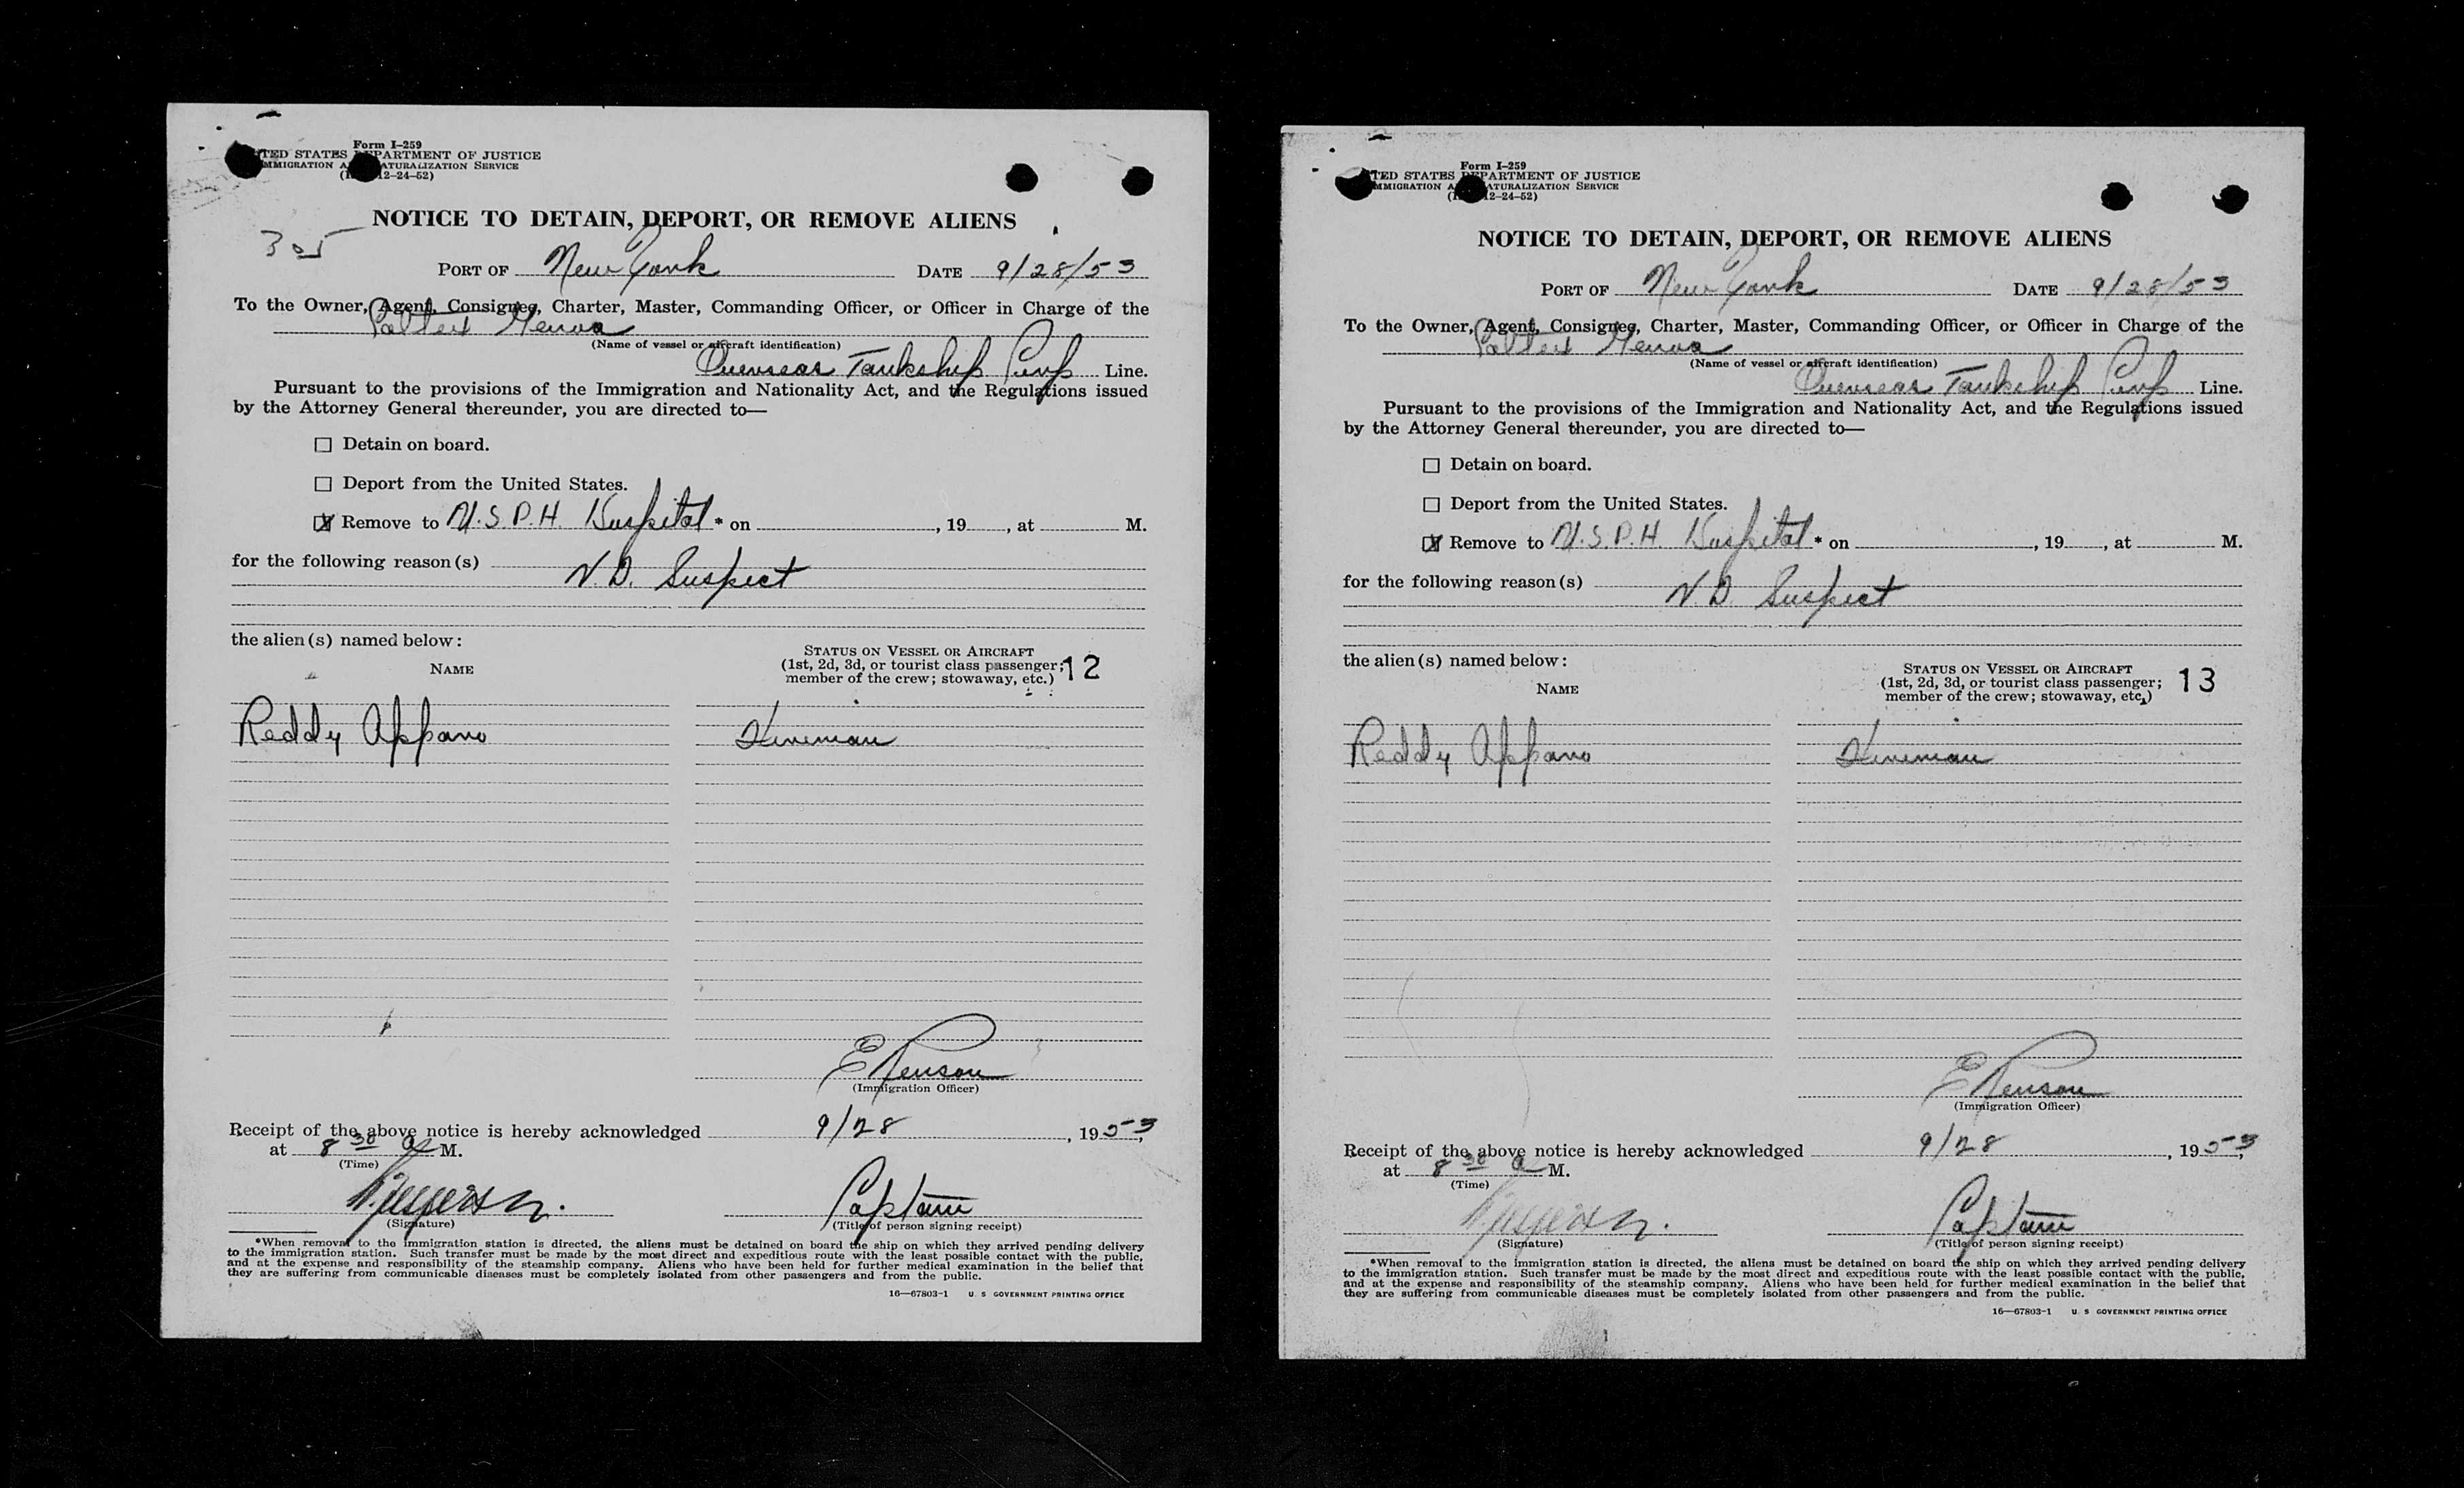 Form I-259
TED STATES PARTMENT OF JUSTICE
MMIGRATION A ATURALIZATION SERVICE
12-24-52)
NOTICE TO DETAIN, DEPORT, OR REMOVE ALIENS
305
PORT OF New York DATE 9/28/53
To the Owner, Agent, Consignee, Charter, Master, Commanding Officer, or Officer in Charge of the
Caltex Genoa
(Name of vessel or aircraft identification)
Overseas Tankship Corp Line.
Pursuant to the provisions of the Immigration and Nationality Act, and the Regulations issued
by the Attorney General thereunder, you are directed to—
☐ Detain on board.
☐ Deport from the United States.
☒ Remove to U.S.P.H. Hospital * on , 19 , at M.
for the following reason(s)
V.D. Suspect
the alien(s) named below:
NAME
STATUS ON VESSEL OR AIRCRAFT
(1st, 2d, 3d, or tourist class passenger;
member of the crew; stowaway, etc.)
12
Reddy Appano Fireman
(Immigration Officer)
Receipt of the above notice is hereby acknowledged 9/28, 1953,
at 8 30 a M.
(Time)
Captain
(Signature) (Title of person signing receipt)
*When removal to the immigration station is directed, the aliens must be detained on board the ship on which they arrived pending delivery
to the immigration station. Such transfer must be made by the most direct and expeditious route with the least possible contact with the public,
and at the expense and responsibility of the steamship company. Aliens who have been held for further medical examination in the belief that
they are suffering from communicable diseases must be completely isolated from other passengers and from the public.
16—67803-1 U. S GOVERNMENT PRINTING OFFICE
Form I-259
TED STATES PARTMENT OF JUSTICE
MMIGRATION A ATURALIZATION SERVICE
12-24-52)
NOTICE TO DETAIN, DEPORT, OR REMOVE ALIENS
PORT OF New York DATE 9/28/53
To the Owner, Agent, Consignee, Charter, Master, Commanding Officer, or Officer in Charge of the
Caltex Genoa
(Name of vessel or aircraft identification)
Overseas Tankship Corp Line.
Pursuant to the provisions of the Immigration and Nationality Act, and the Regulations issued
by the Attorney General thereunder, you are directed to—
☐ Detain on board.
☐ Deport from the United States.
☒ Remove to U.S.P.H. Hospital * on , 19 , at M.
for the following reason(s)
V.D. Suspect
the alien(s) named below:
NAME
STATUS ON VESSEL OR AIRCRAFT
(1st, 2d, 3d, or tourist class passenger;
member of the crew; stowaway, etc.)
13
Reddy Appano Fireman
(Immigration Officer)
Receipt of the above notice is hereby acknowledged 9/28, 1953,
at 8 30 a M.
(Time)
Captain
(Signature) (Title of person signing receipt)
*When removal to the immigration station is directed, the aliens must be detained on board the ship on which they arrived pending delivery
to the immigration station. Such transfer must be made by the most direct and expeditious route with the least possible contact with the public,
and at the expense and responsibility of the steamship company. Aliens who have been held for further medical examination in the belief that
they are suffering from communicable diseases must be completely isolated from other passengers and from the public.
16—67803-1 U. S GOVERNMENT PRINTING OFFICE